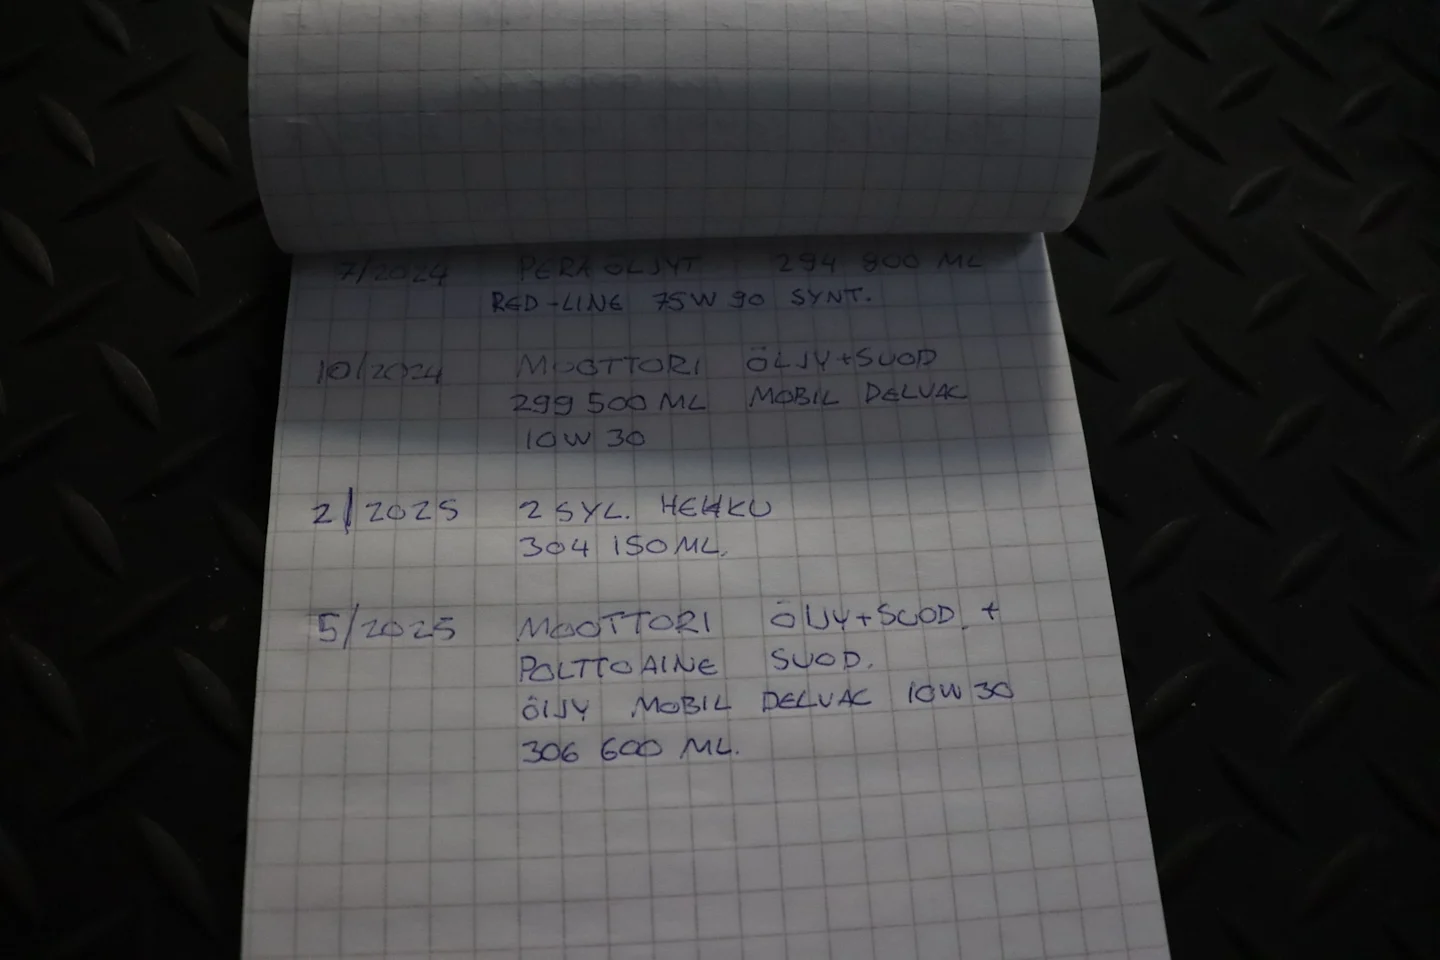 7/2024 PERÄ ÖLJYT 294 800 ML
RED-LINE 75W 90 SYNT.
10/2024 MOOTTORI ÖLJY+SUOD
299 500 ML MOBIL DELVAC
10W 30
2/2025 2 SYL. HEHKU
304 150 ML.
5/2025 MOOTTORI ÖLJY+SUOD. +
POLTTOAINE SUOD.
ÖLJY MOBIL DELVAC 10W 30
306 600 ML.